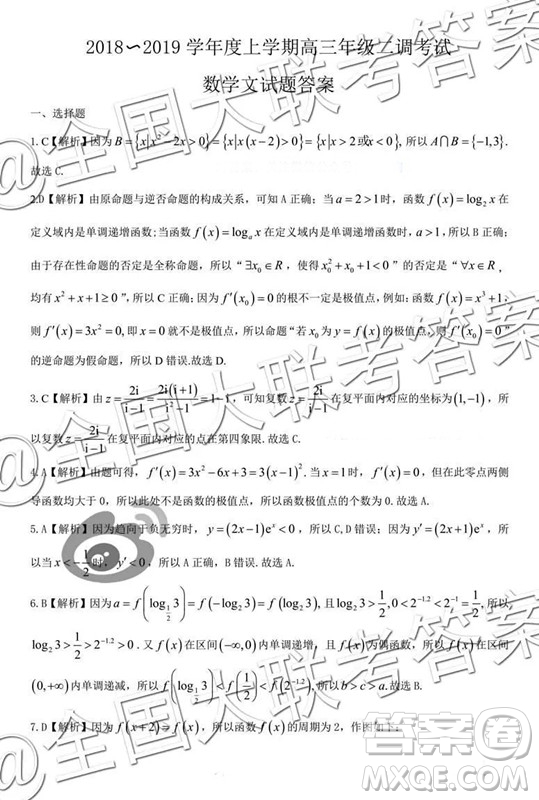 2018~2019 学年度上学期高三年级二调考试
数学文试题答案
一、选择题
1.C【解析】因为 B={x|x²-2x>0}={x|x(x-2)>0}={x|x>2或x<0}, 所以 A∩B={-1,3}.
故选 C.
2.D【解析】由原命题与逆否命题的构成关系, 可知 A 正确; 当 a=2>1 时, 函数 f(x)=log₂x 在
定义域内是单调递增函数; 当函数 f(x)=logₐx 在定义域内是单调递增函数时, a>1, 所以 B 正确;
由于存在性命题的否定是全称命题, 所以“∃x₀∈R, 使得 x₀²+x₀+1<0”的否定是“∀x∈R,
均有 x²+x+1≥0”, 所以 C 正确; 因为 f′(x₀)=0 的根不一定是极值点, 例如: 函数 f(x)=x³+1,
则 f′(x)=3x²=0, 即 x=0 就不是极值点, 所以命题“若 x₀ 为 y=f(x) 的极值点, 则 f′(x₀)=0”
的逆命题为假命题, 所以 D 错误.故选 D.
3.C【解析】由 z=2i/(i-1)=2i(i+1)/(i²-1)=1-i, 可知复数 z=2i/(i-1) 在复平面内对应的坐标为(1,-1), 所
以复数 z=2i/(i-1) 在复平面内对应的点在第四象限.故选 C.
4.A【解析】由题可得, f′(x)=3x²-6x+3=3(x-1)². 当 f′(x)=0 时, x=1, 但在此零点两侧
导函数均大于 0, 所以此处不是函数的极值点, 所以函数极值点的个数为 0. 故选 A.
5.A【解析】因为趋向于负无穷时, y=(2x-1)eˣ<0, 所以 C,D 错误; 因为 y′=(2x+1)eˣ, 所
以当 x<-1/2 时, y′<0, 所以 A 正确, B 错误.故选 A.
6.B【解析】因为 a=f(log_{1/2}3)=f(-log₂3)=f(log₂3), 且 log₂3>1/2, 0<2^{-1.2}<2^{-1}=1/2, 所以
log₂3>1/2>2^{-1.2}>0. 又 f(x) 在区间(-∞,0)内单调递增, 且 f(x) 为偶函数, 所以 f(x) 在区间
(0,+∞) 内单调递减, 所以 f(log_{1/2}3)<f(1/2)<f(2^{-1.2}), 所以 b>c>a. 故选 B.
7.D【解析】因为 f(x+2)=f(x), 所以函数 f(x) 的周期为 2, 作图如下:
@全国大联考答案
答案卷
MXQE.COM